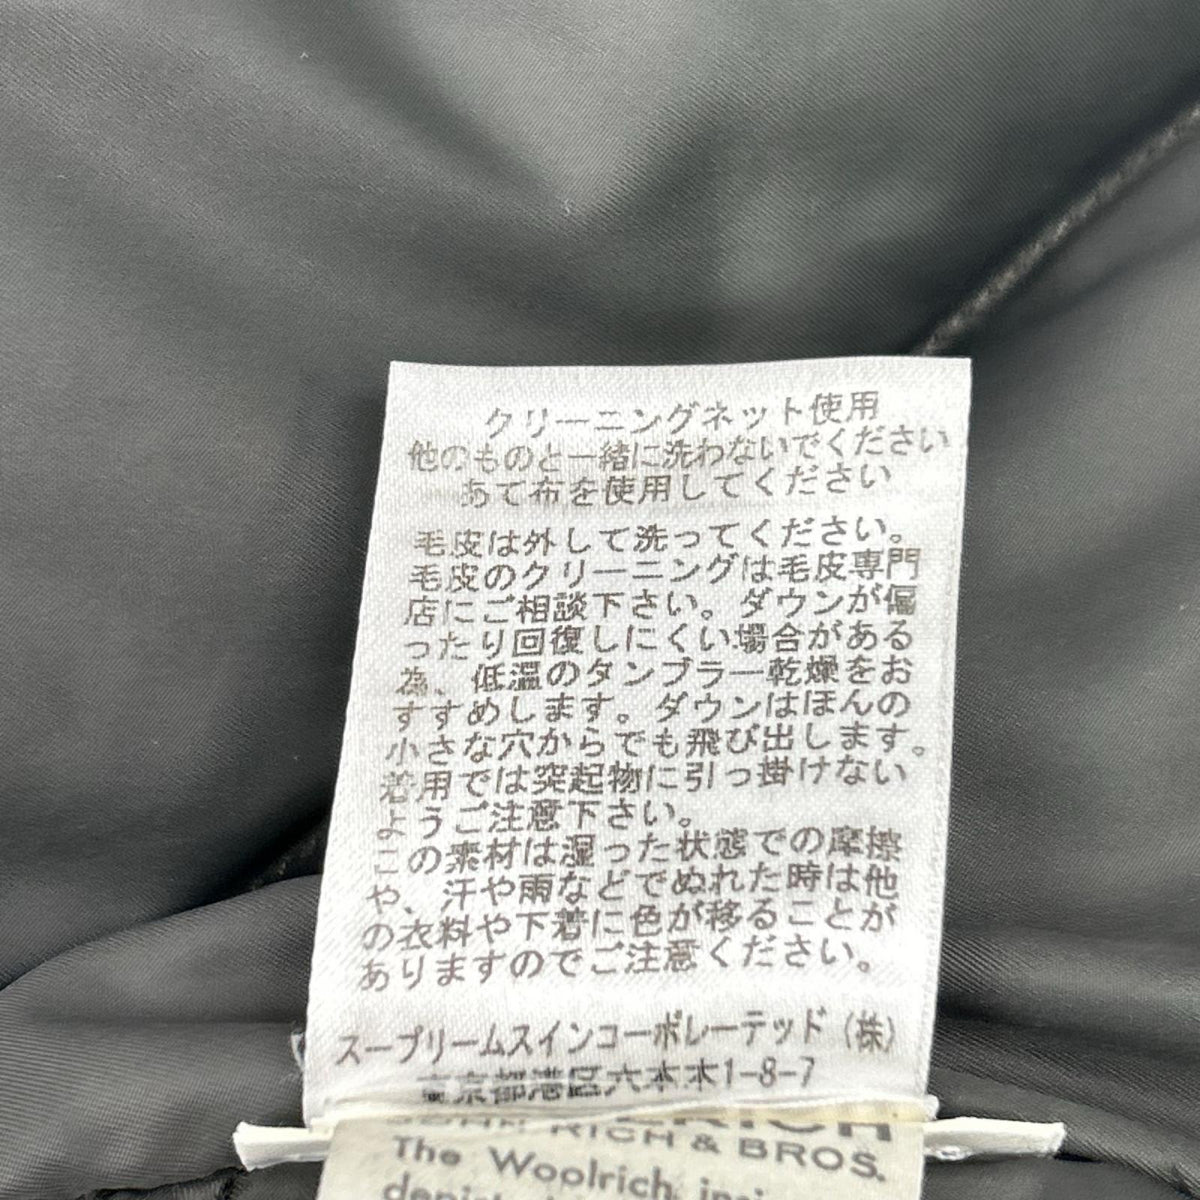 クリーニングネット使用
他のものと一緒に洗わないでください
あて布を使用してください
毛皮は外して洗ってください。
毛皮のクリーニングは毛皮専門
店にご相談下さい。ダウンが偏
ったり回復しにくい場合がある
為、低温のタンブラー乾燥をお
すすめします。ダウンはほんの
小さな穴からでも飛び出します。
着用では突起物に引っ掛けない
ようご注意下さい。
この素材は湿った状態での摩擦
や、汗や雨などでぬれた時は他
の衣料や下着に色が移ることが
ありますのでご注意ください。
スープリームスインコーポレーテッド(株)
東京都港区六本木1-8-7
JOHN RICH & BROS.
The Woolrich